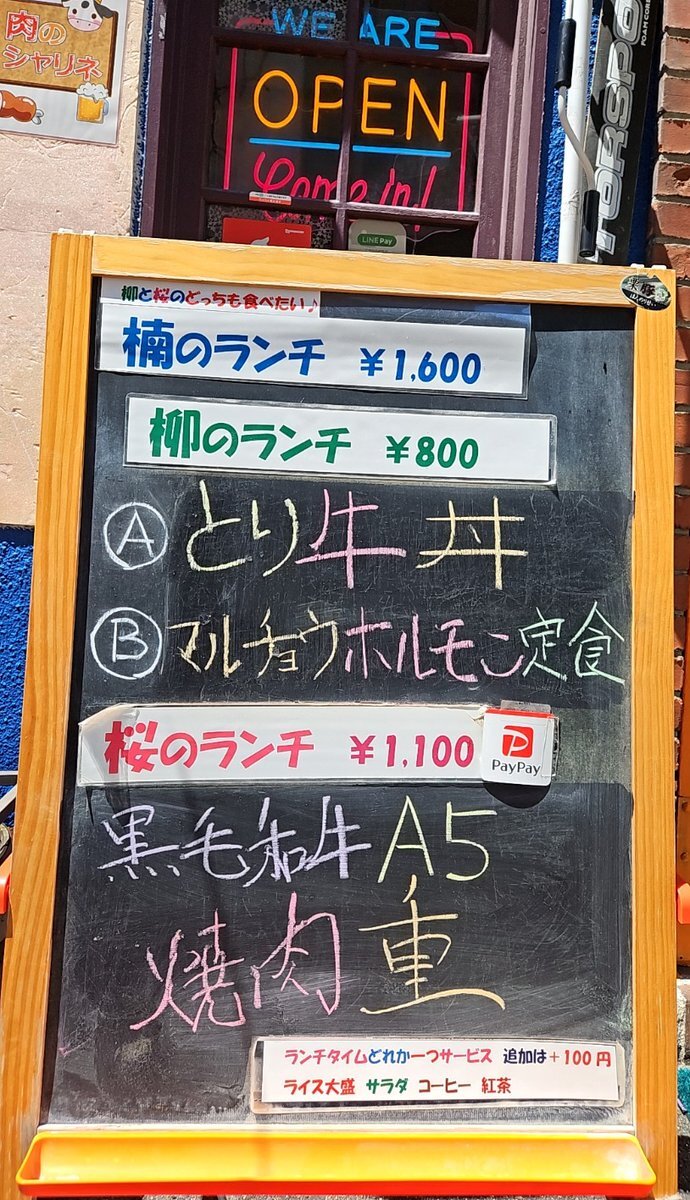 肉の
シャリネ
WE ARE
OPEN
Come in!
LINE Pay
TORSPO
柳と桜のどっちも食べたい♪
楠のランチ ￥1,600
柳のランチ ￥800
Ⓐ とり牛丼
Ⓑ マルチョウホルモン定食
桜のランチ ￥1,100
PayPay
黒毛和牛A5
焼肉重
ランチタイムどれか一つサービス 追加は+100円
ライス大盛 サラダ コーヒー 紅茶